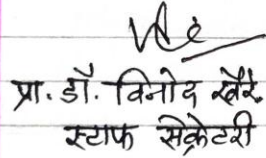 प्रा. डॉ. विनोद खैरे.
स्टाफ सेक्रेटरी